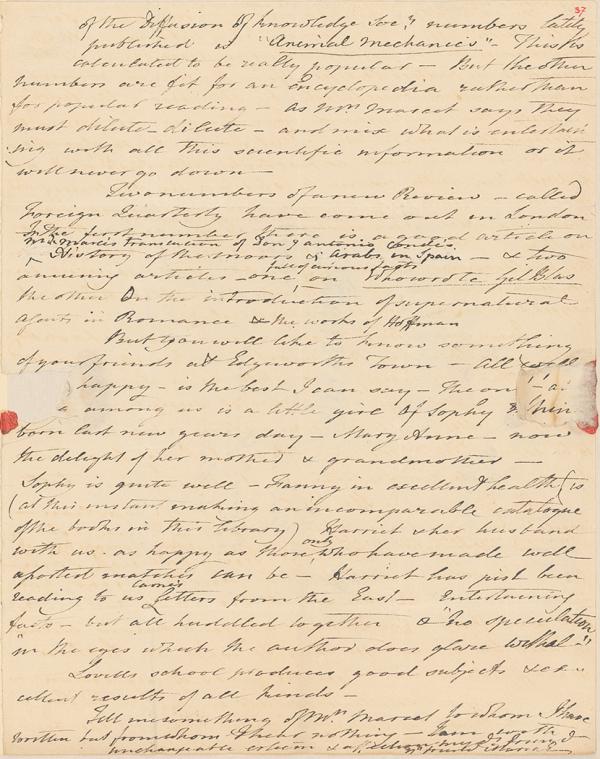 37
of the Diffusion of Knowledge Soc.y numbers lately
published is "Animal Mechanics" – This is
calculated to be really popular – But the other
numbers are fit for an Encyclopedia rather than
for popular reading – as Mrs Marcet says they
must dilute – dilute – and mix what is entertain
ing with all this scientific information or it
will never go down –
Two numbers of a new Review – called
Foreign Quarterly have come out in London
In the first number there is a good article on
Mde Marcis translation of Don J Antonio Condés
History of the Moors & Arabs in Spain – & two
amusing articles one, full of curious facts on Who wrote Gil Blas
the other On the introduction of supernatural
agents in Romance & the works of Hoffman
But you will like to know something
of your friends at Edgeworths Town – All well
happy – is the best I can say – The
among us is a little girl of Sophy
born last new years day – Mary Anne – now
the delight of her mother & grandmother –
Sophy is quite well – Fanny in excellent health (is
(at this instant making an incomparable catalogue
of the books in this library) Harriet & her husband
with us. as happy as those only who have made well
assorted matches can be – Harriet has just been
reading to us Carnes Letters from the East – Entertaining
facts – but all huddled together & "no speculation
"in the eyes which the author does glare withal –"
Lovells school produces good subjects & ex
cellent results of all kinds –
Tell me something of Mrs Marcet to whom I have
written but from whom I hear nothing – I am with
unchangeable esteem &